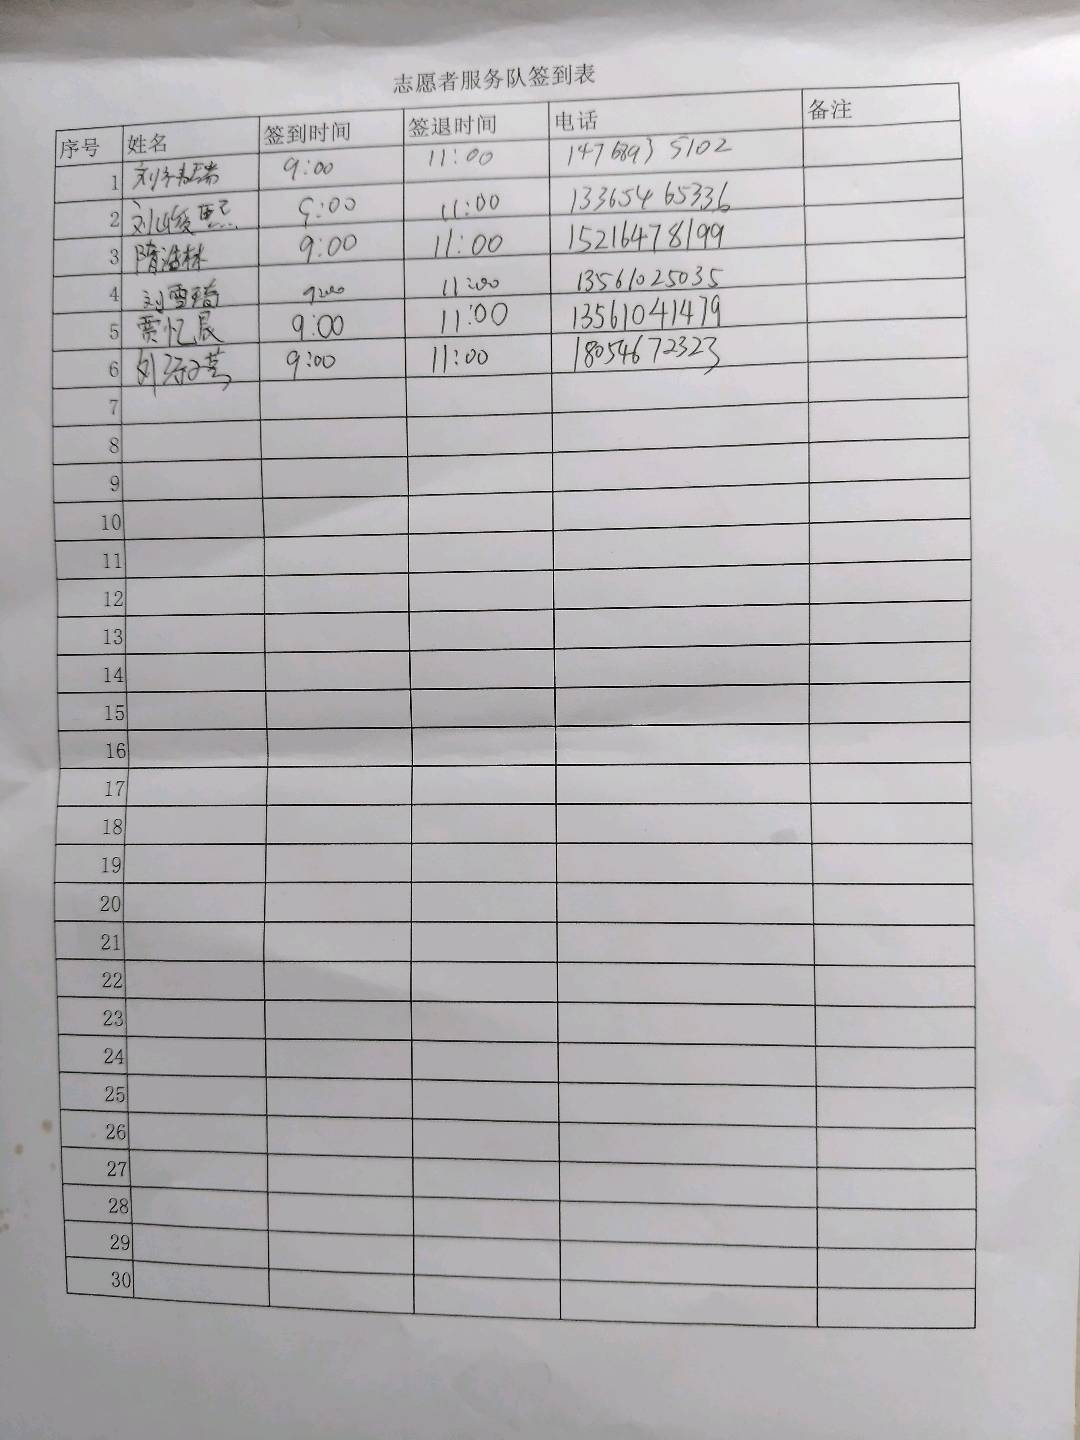 志愿者服务队签到表
序号 姓名 签到时间 签退时间 电话 备注
1 9:00 11:00
2 9:00 11:00 13365465336
3 隋浩林 9:00 11:00 15216478199
4 刘雪琦 9:00 11:00 13561025035
5 贾忆晨 9:00 11:00 13561041479
6 9:00 11:00 18054672323
7
8
9
10
11
12
13
14
15
16
17
18
19
20
21
22
23
24
25
26
27
28
29
30